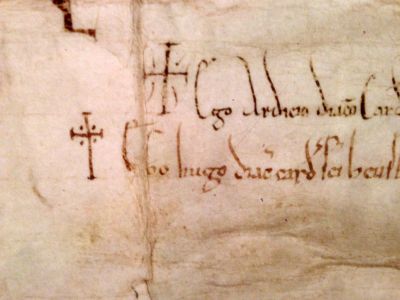 ✝ Ego Ardicio diac̄ Card
✝ Ego hugo diac̄ card̄ sc̄i